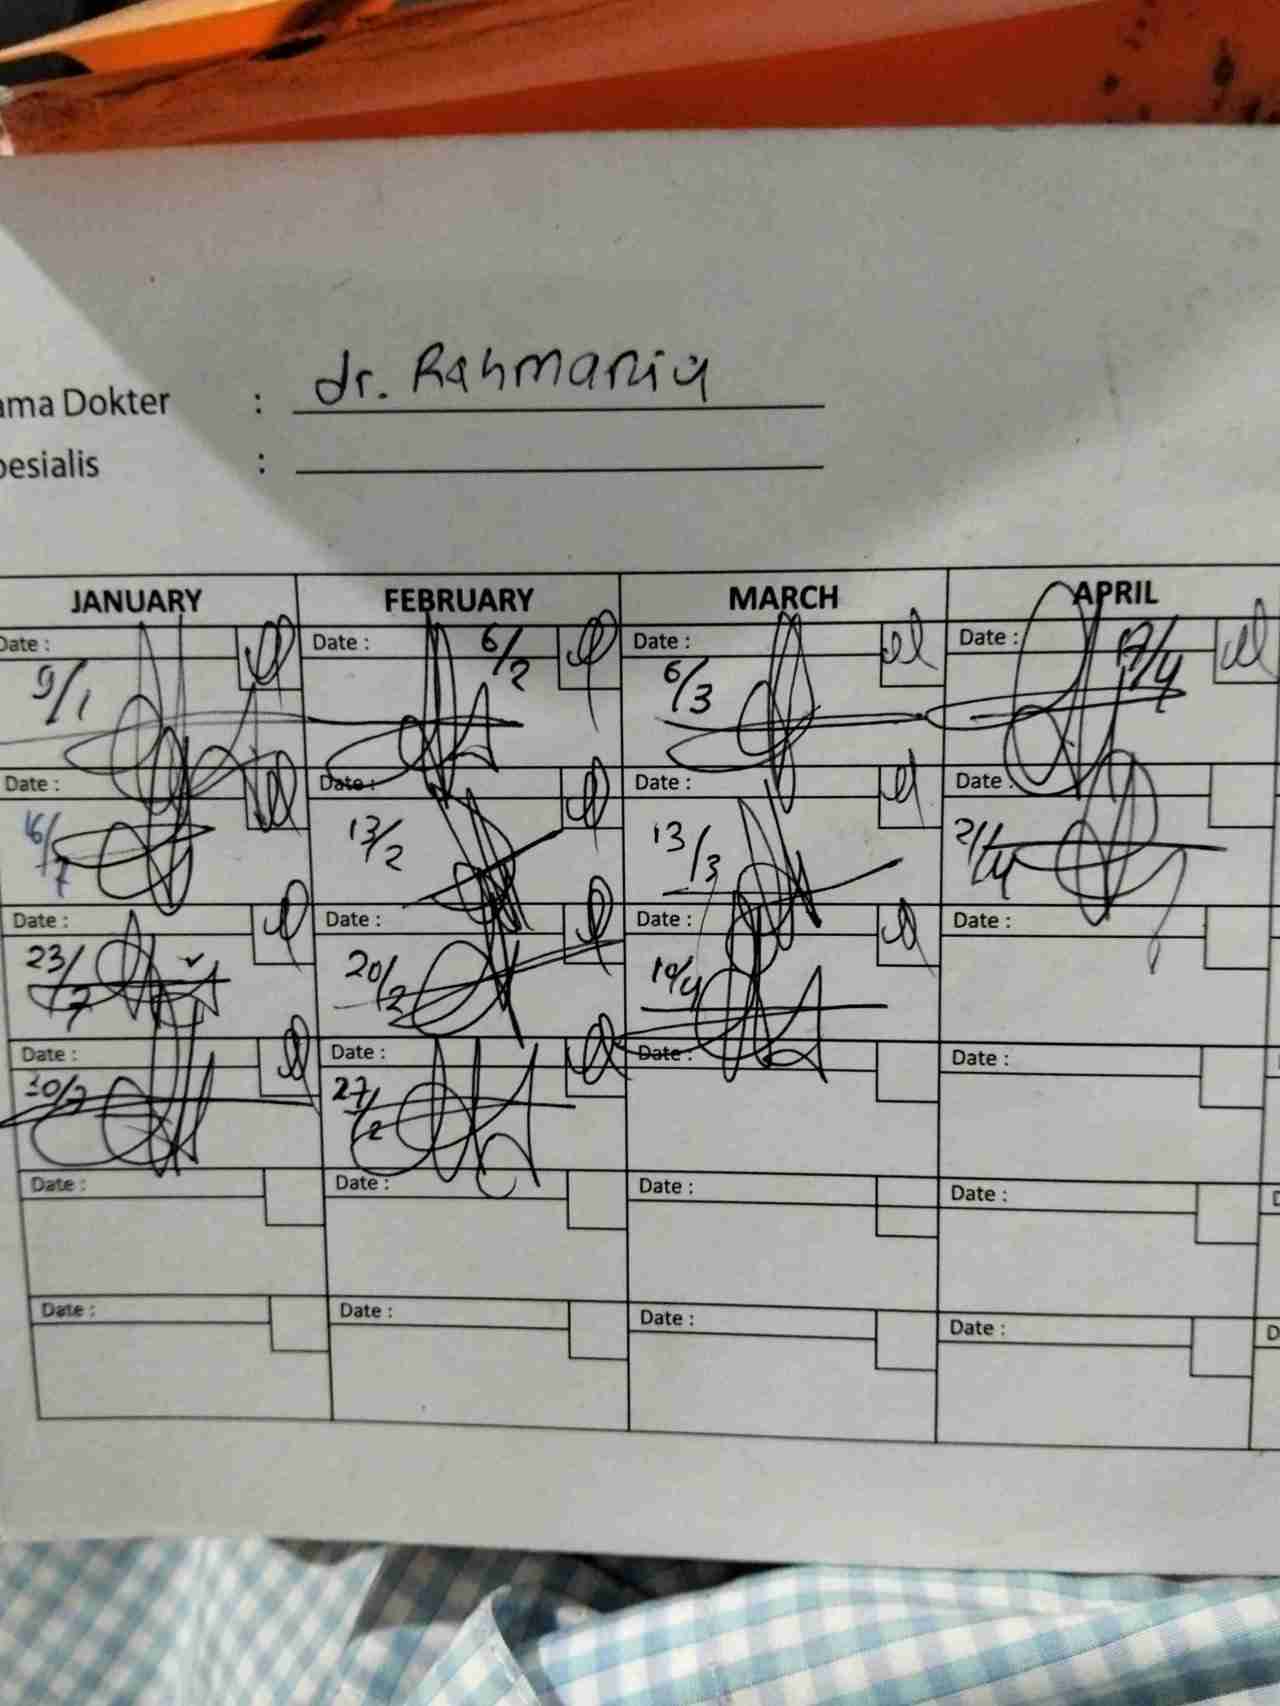 ama Dokter : dr. Rahmania
pesialis :
JANUARY FEBRUARY MARCH APRIL
Date : Date : 6/2 Date : Date : 17/4
9/1 6/3
Date : Date : Date : Date :
16/7 13/2 13/3 2/4
Date : Date : Date : Date :
23/7 20/2 19/4
Date : Date : Date : Date :
30/7 27/2
Date : Date : Date : Date : D
Date : Date : Date : Date : D